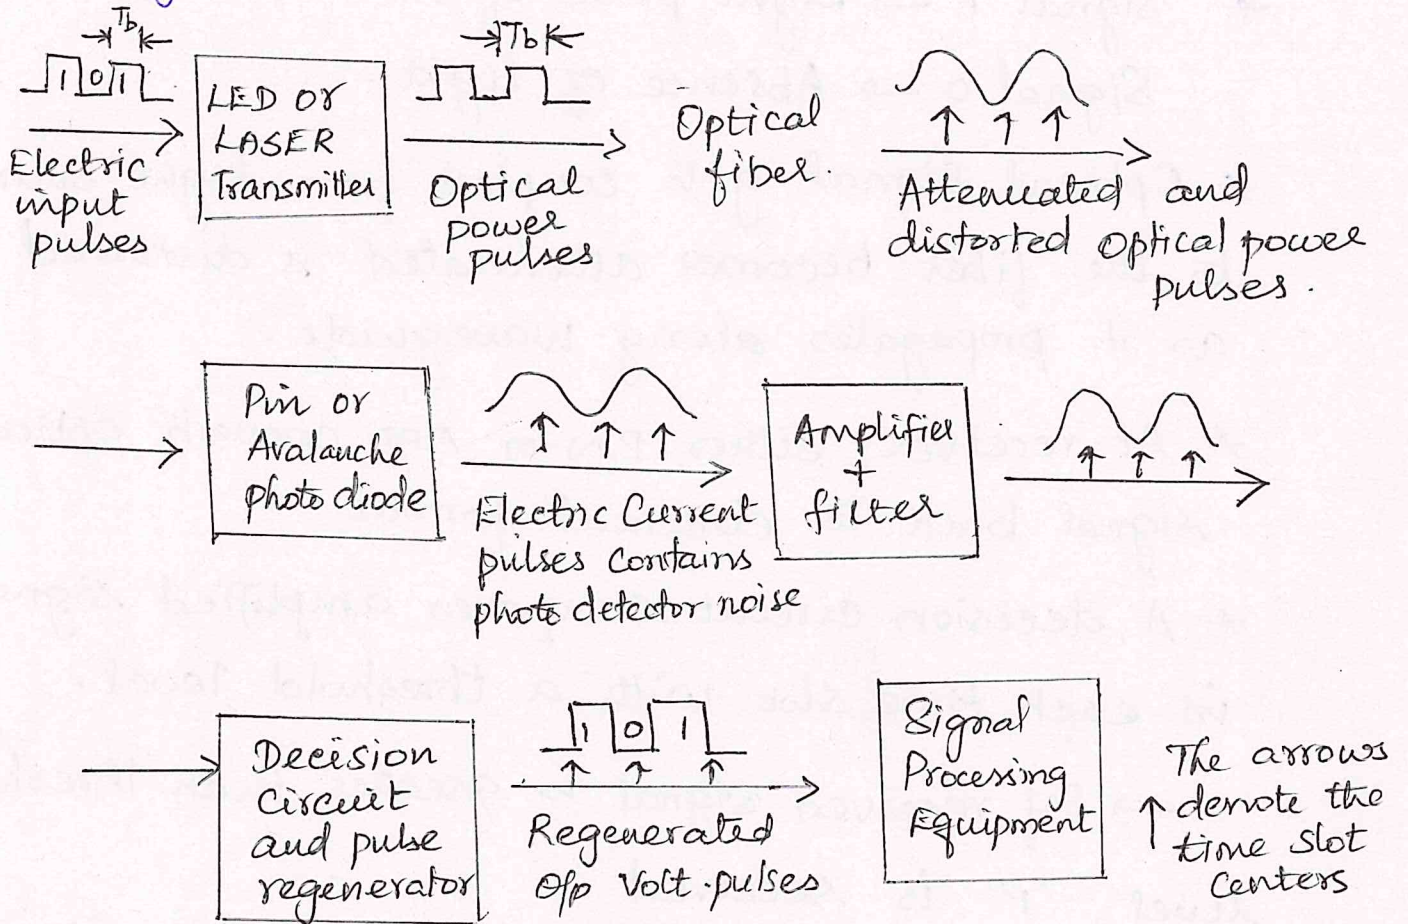 Tb
1 0 1
Electric
input
pulses
LED or
LASER
Transmitter
Tb
Optical
power
pulses
Optical
fiber.
Attenuated and
distorted Optical power
pulses.
Pin or
Avalanche
photo diode
Electric Current
pulses contains
photo detector noise
Amplifier
+
filter
Decision
Circuit
and pulse
regenerator
1 0 1
Regenerated
O/p Volt. pulses
Signal
Processing
Equipment
The arrows
denote the
time slot
centers